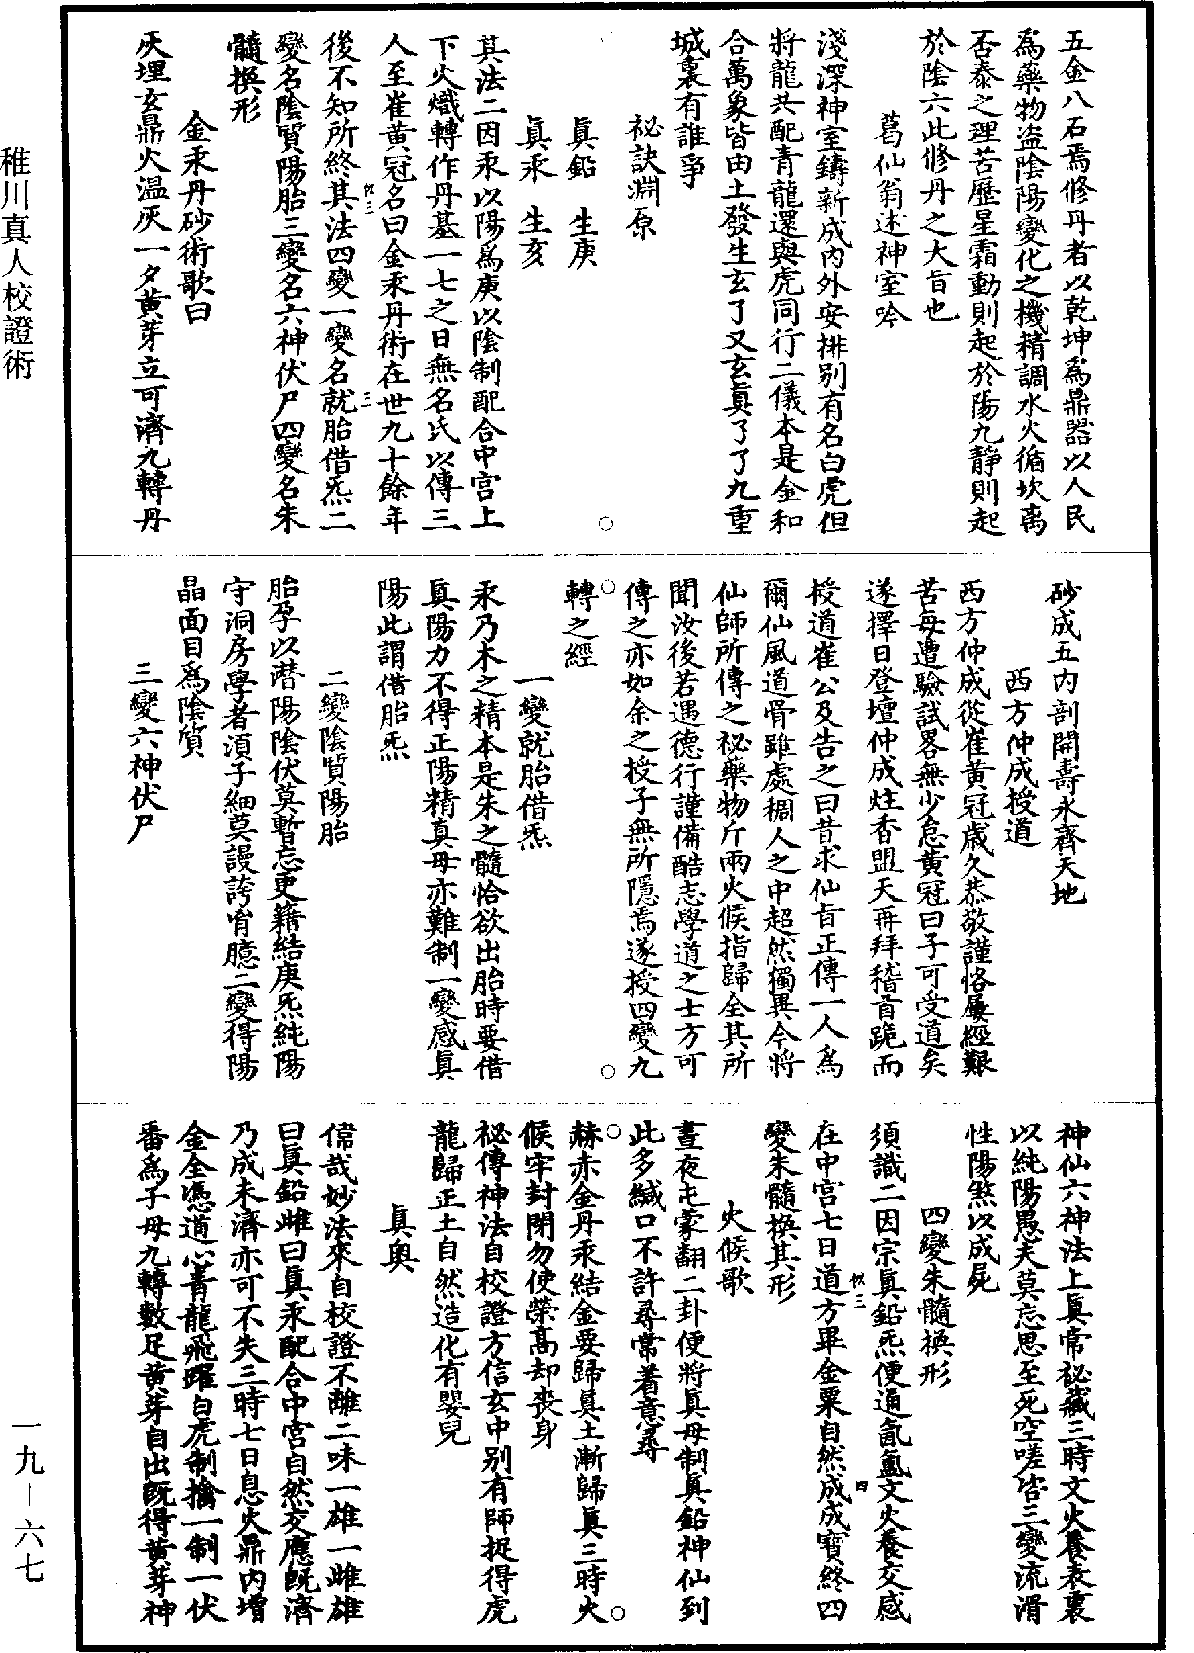 五金八石焉修丹者以乾坤爲鼎器以人民
爲藥物盜陰陽變化之機精調水火循坎离
否泰之理苦歷星霜動則起於陽九靜則起
於陰六此修丹之大旨也
葛仙翁述神室吟
淺深神室鑄新成內外安排別有名白虎但
將龍共配青龍還與虎同行二儀本是金和
合萬象皆由土發生玄了又玄真了了九重
城裏有誰爭
祕訣淵原
真鉛　生庚
真汞　生亥
其法二因汞以陽爲庚以陰制配合中宮上
下火熾轉作丹基一七之日無名氏以傳三
人至崔黃冠名曰金汞丹術在世九十餘年
後不知所終其法四變一變名就胎借炁二
變名陰質陽胎三變名六神伏尸四變名朱
髓換形
金汞丹砂術歌曰
灰埋玄鼎火温灰一夕黃芽立可濟九轉丹
砂成五内剖開壽永齊天地
西方仲成授道
西方仲成從崔黃冠歲久恭敬謹恪屢經艱
苦每遭驗試畧無少怠黃冠曰子可受道矣
遂擇日登壇仲成炷香盟天再拜稽首跪而
授道崔公及告之曰昔求仙旨正傳一人爲
爾仙風道骨雖處稠人之中超然獨異今將
仙師所傳之祕藥物斤兩火候指歸全其所
聞汝後若遇德行謹備酷志學道之士方可
傳之亦如余之授子無所隱焉遂授四變九
轉之經
一變就胎借炁
汞乃木之精本是朱之髓恰欲出胎時要借
真陽力不得正陽精真母亦難制一變感真
陽此謂借胎炁
二變陰質陽胎
胎孕以潜陽陰伏莫暫忘更籍結庚炁純陽
守洞房學者須子細莫謾誇胷臆二變得陽
晶面目爲陰質
三變六神伏尸
神仙六神法上真常祕藏三時文火養表裏
以純陽愚夫莫忘思至死空嗟咨三變流滑
性陽煞以成屍
四變朱髓換形
須識二因宗真鉛炁便通氤氳文火養交感
在中宮七日道方畢金粟自然成成寶終四
變朱髓換其形
火候歌
晝夜屯蒙翻二卦便將真母制真鉛神仙到
此多緘口不許尋常著意尋
赫赤金丹汞結金要歸真土漸歸真三時火
候牢封閉勿使榮高却喪身
祕傳神法自校證方信玄中別有師捉得虎
龍歸正土自然造化有嬰兒
真奥
偉哉妙法來自校證不離二味一雄一雌雄
曰真鉛雌曰真汞配合中宮自然交應既濟
乃成未濟亦可不失三時七日息火鼎内增
金全憑道心青龍飛躍白虎制擒一制一伏
番爲子母九轉數足黃芽自出既得黃芽神
稚川真人校證術
一九－六七